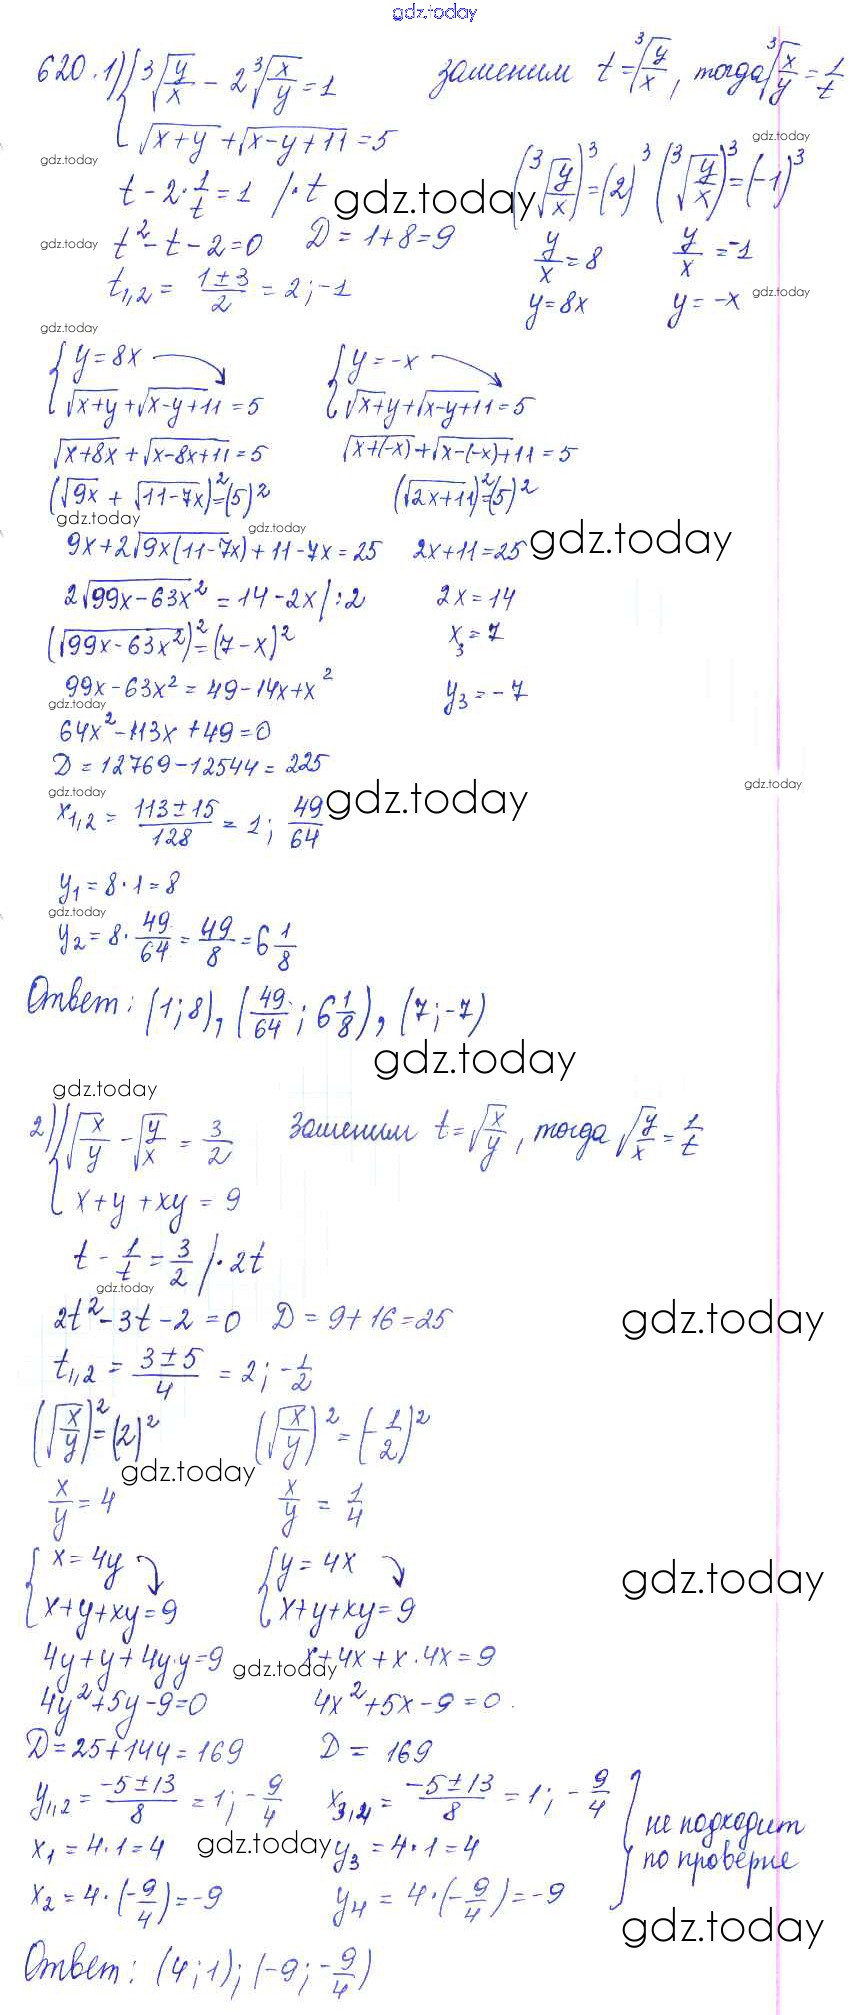 gdz.today
620. 1) { ∛(y/x) − 2∛(x/y) = 1 заменим t = ∛(y/x), тогда ∛(x/y) = 1/t
√(x+y) + √(x−y+11) = 5 gdz.today
gdz.today t − 2·1/t = 1 |·t gdz.today (∛(y/x))³ = (2)³ (∛(y/x))³ = (−1)³
gdz.today t² − t − 2 = 0 D = 1+8 = 9 y/x = 8 y/x = −1
t₁,₂ = (1±3)/2 = 2; −1 y = 8x y = −x gdz.today
gdz.today
{ y = 8x { y = −x
√(x+y) + √(x−y+11) = 5 √(x+y) + √(x−y+11) = 5
√(x+8x) + √(x−8x+11) = 5 √(x+(−x)) + √(x−(−x)+11) = 5
(√9x + √(11−7x))² = (5)² (√(2x+11))² = (5)²
gdz.today gdz.today gdz.today
9x + 2√(9x(11−7x)) + 11 − 7x = 25 2x + 11 = 25
2√(99x−63x²) = 14 − 2x |:2 2x = 14
(√(99x−63x²))² = (7−x)² x₃ = 7
99x − 63x² = 49 − 14x + x² y₃ = −7
gdz.today
64x² − 113x + 49 = 0
D = 12769 − 12544 = 225
gdz.today gdz.today gdz.today
x₁,₂ = (113±15)/128 = 1; 49/64
y₁ = 8·1 = 8
gdz.today
y₂ = 8·49/64 = 49/8 = 6 1/8
Ответ: (1; 8), (49/64; 6 1/8), (7; −7)
gdz.today
gdz.today
2) { √(x/y) − √(y/x) = 3/2 заменим t = √(x/y), тогда √(y/x) = 1/t
x + y + xy = 9
t − 1/t = 3/2 |·2t
gdz.today
2t² − 3t − 2 = 0 D = 9+16 = 25 gdz.today
t₁,₂ = (3±5)/4 = 2; −1/2
(√(x/y))² = (2)² (√(x/y))² = (−1/2)²
gdz.today
x/y = 4 x/y = 1/4
{ x = 4y { y = 4x gdz.today
x+y+xy = 9 x+y+xy = 9
4y + y + 4y·y = 9 gdz.today x + 4x + x·4x = 9
4y² + 5y − 9 = 0 4x² + 5x − 9 = 0.
D = 25 + 144 = 169 D = 169
y₁,₂ = (−5±13)/8 = 1; −9/4 x₃,₄ = (−5±13)/8 = 1; −9/4 } не подходит
x₁ = 4·1 = 4 gdz.today y₃ = 4·1 = 4 по проверке
x₂ = 4·(−9/4) = −9 y₄ = 4·(−9/4) = −9
gdz.today
Ответ: (4; 1); (−9; −9/4)